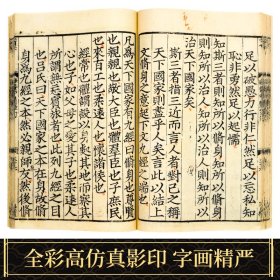 足以破愚力行非仁然足以忘私知
恥非勇然足以起懦
知斯三者則知所以脩身知所以脩身
則知所以治人知所以治人則知所以
治天下國家矣
斯三者指三近而言人者對己之稱
天下國家則盡乎人矣言此以結上
文脩身之意起下文九經之端也
凡爲天下國家有九經曰脩身也尊賢
也親親也敬大臣也體群臣也子庶民
也來百工也柔遠人也懷諸侯也
經常也體謂設以身處其地而察其
心也子如父母之愛其子也柔遠人
所謂無忘賓旅者也此列九經之目
也呂氏曰天下國家之本在身故脩
身爲九經之本然必親師友然後脩
全彩高仿真影印 字画精严